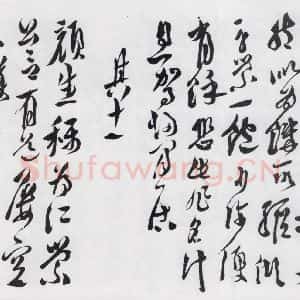 然似為飢所驅傾
身營一飽少許便
有餘恐此非名計
息駕歸閒居
其十一
顏生稱為仁榮
公言有道屢空
Shufawang.CN